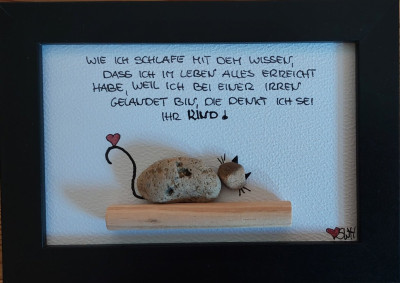 WIE ICH SCHLAFE MIT DEM WISSEN,
DASS ICH IM LEBEN ALLES ERREICHT
HABE, WEIL ICH BEI EINER IRREN
GELANDET BIN, DIE DENKT ICH SEI
IHR KIND!